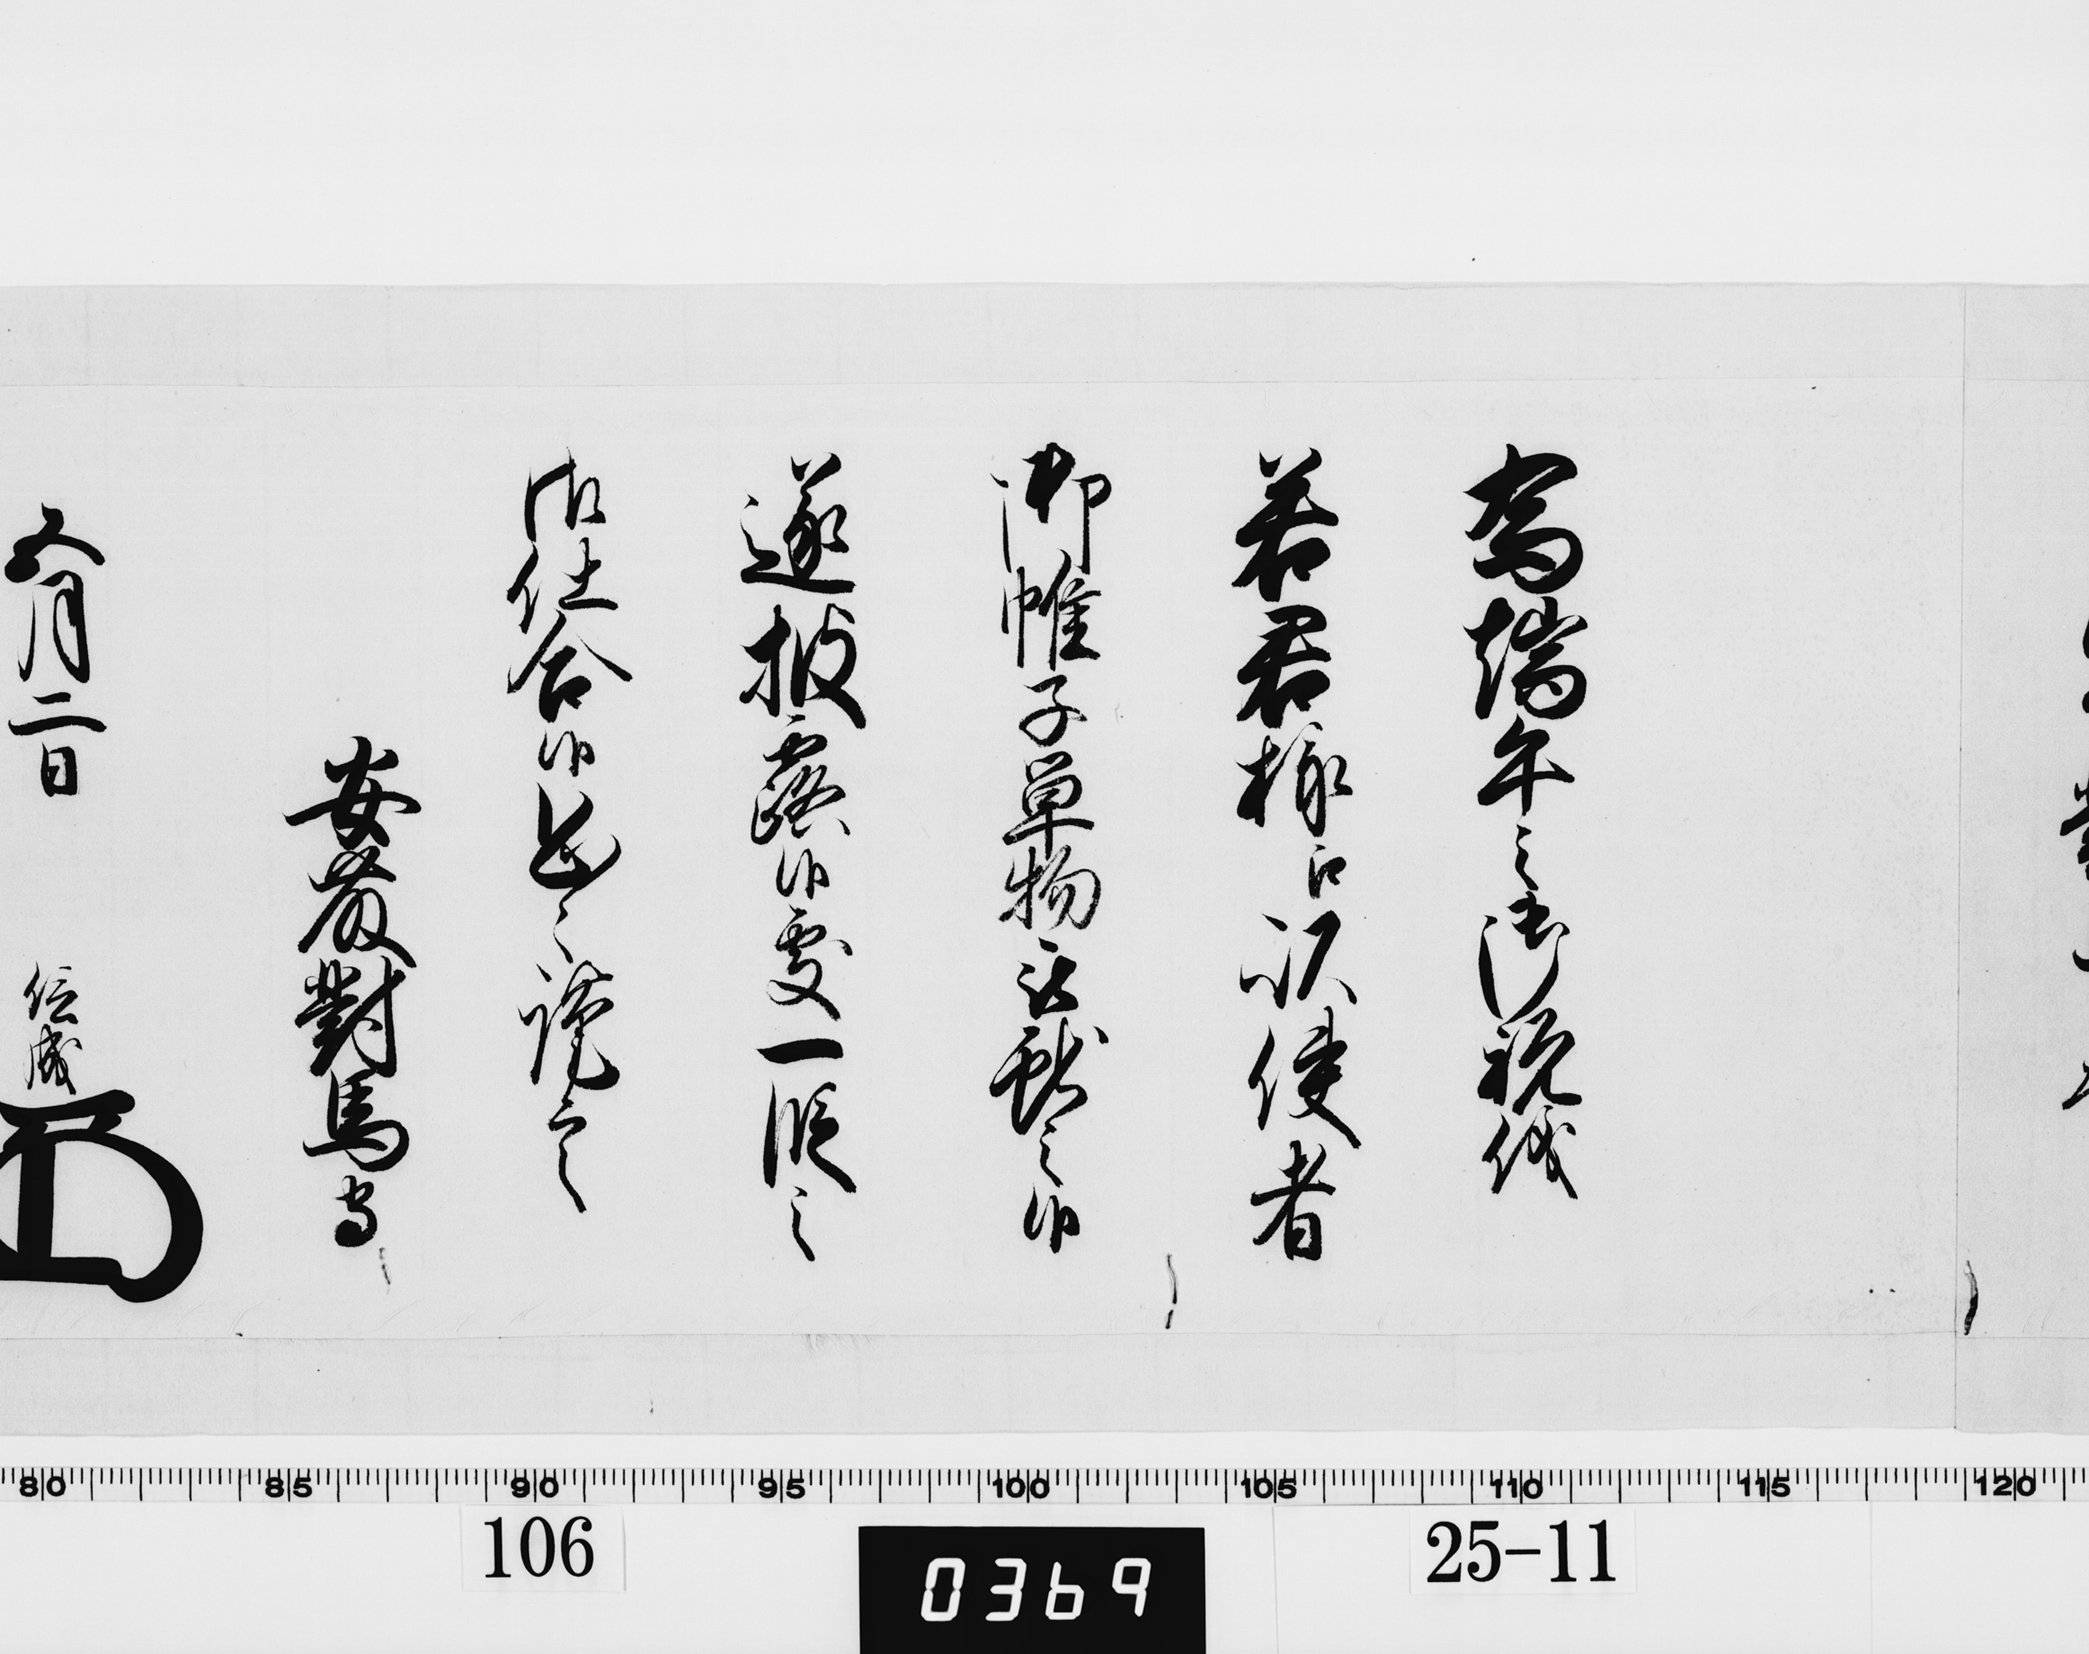 為端午之御祝儀
若君様江以使者
御帷子単物被献之候
遂披露候処一段之
御仕合候恐々謹言
安藤對馬守
五月二日
信成
80 85 90 95 100 105 110 115 120
106
25-11
0369